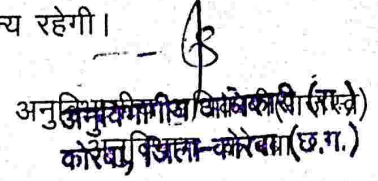 न्य रहेगी।
अनुविभागीय अधिकारी (रा०)
कोरबा, जिला-कोरबा (छ.ग.)